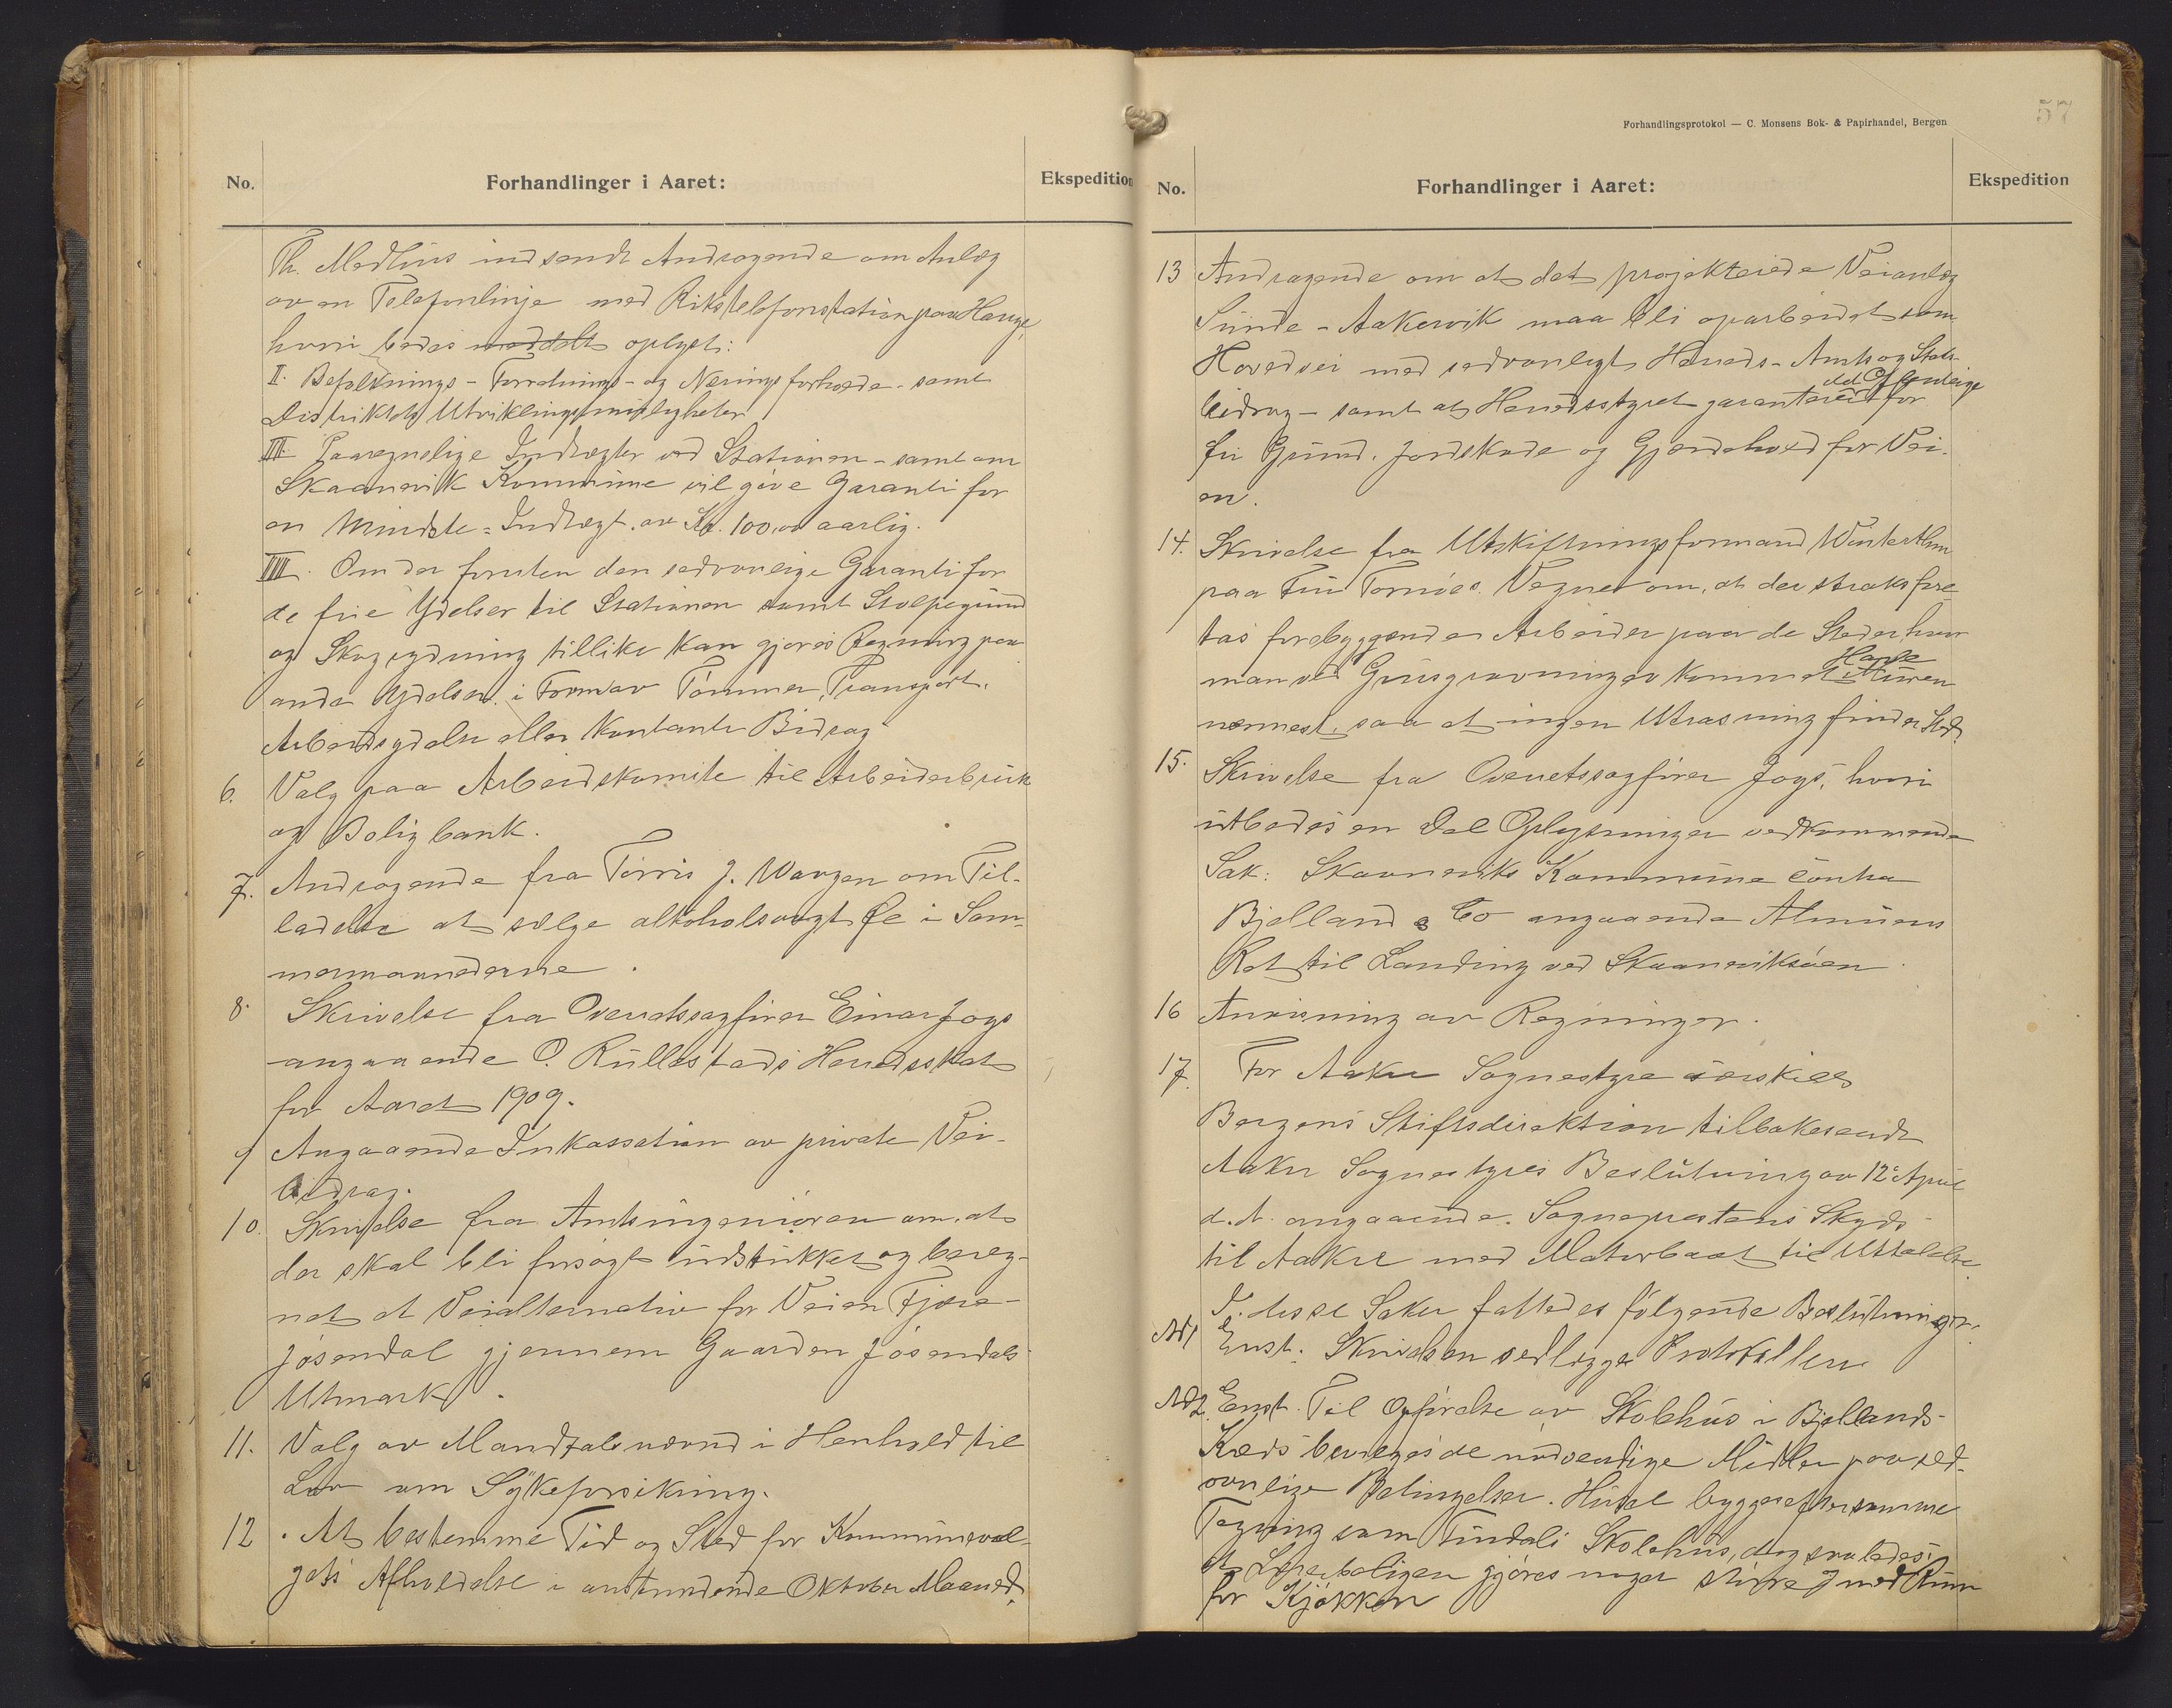 No.
Forhandlinger i Aaret:
Ekspedition
Th. Medhus indsendt Andragende om Anlæg
av en Telefonlinje med Rikstelefonstation paa Hauge,
hvori bedes meddelt oplyst:
II. Befolknings- Forretnings- og Næringsforholde- samt
Distriktets Utviklingsmuligheter
III. Paaregnelige Indtægter ved Stationen - samt om
Skaanevik Kommune vil give Garanti for
en Mindste-Indtægt av Kr. 100,00 aarlig.
IIII. Om der foruten den sedvanlige Garanti for
de frie Ydelser til Stationen samt Stolpegrund
og Skogrydning tillike kan gjøres Regning paa
andre Ydelser i Form av Tømmer, Transport,
Arbeidsydelse eller Kontante Bidrag
6. Valg paa Arbeidskomite til Arbeiderbruk
og Boligbank.
7. Andragende fra Tørris J. Wangen om Til-
ladelse at sælge alkoholsvagt Øl i Som-
mermaanederne.
8. Skrivelse fra Overretssagfører Einar Jogs
angaaende O. Rullestads Herredsskat
for Aaret 1909.
9 Angaaende Inkassation av private Vei-
bidrag.
10. Skrivelse fra Amtsingeniøren om, at
der skal bli forsøgt utstukket og bereg-
net et Veialternativ for Veien Fjære-
Jøsendal gjennem Gaarden Jøsendals
Utmark.
11. Valg av Mandtalsnævnd i Henhold til
Lov om Sykeforsikring.
12. At bestemme Tid og Sted for Kommuneval-
gets Afholdelse i anstundende Oktober Maaned.
57
Forhandlingsprotokol — C. Monsens Bok- & Papirhandel, Bergen
No.
Forhandlinger i Aaret:
Ekspedition
13 Andragende om at det projekterede Veianlæg
Sunde - Aakervik maa bli oparbeidet som
Hovedvei med sedvanligt Herreds- Amts og Stats-
bidrag - samt at Herredsstyret garanterer det Offentlige for
fri Grund, Jordskade og Gjerdehold for Vei-
en.
14. Skrivelse fra Utskiftningsformand Winterthun
paa Fru Tornøes Vegne om, at der straks fore-
tas forebyggende Arbeider paa de Steder hvor
man ved Grusgravninger kommer Have Muren
nærmest, saa at ingen Utrasning finder Sted.
15. Skrivelse fra Overretssagfører Jogs, hvori
utbedes en Del Oplysninger vedkommende
Sak: Skaaneviks Kommune contra
Bjelland & Co angaaende Almuens
Ret til Landing ved Skaaneviksøen.
16 Anvisning av Regninger.
17. For Aakre Sognestyre særskilt
Bergens Stiftsdirektion tilbakesendt
Aakre Sognestyres Beslutning av 12te April
d.A. angaaende Sogneprestens Skyds
til Aakre med Motorbaat til Uttalelse.
I disse Saker fattedes følgende Beslutninger:
Ad 1 Enst. Skrivelsen vedlægges Protokollen
Ad 2. Enst. Til Opførelse av Skolehus i Bjellands-
Kreds bevilges de nødvendige Midler paa sed-
vanlige Betingelser. Huset bygges efter samme
Tegning som Tundals Skolehus, dog saaledes:
at Lærerboligen gjøres noget større med Rum
for Kjøkken